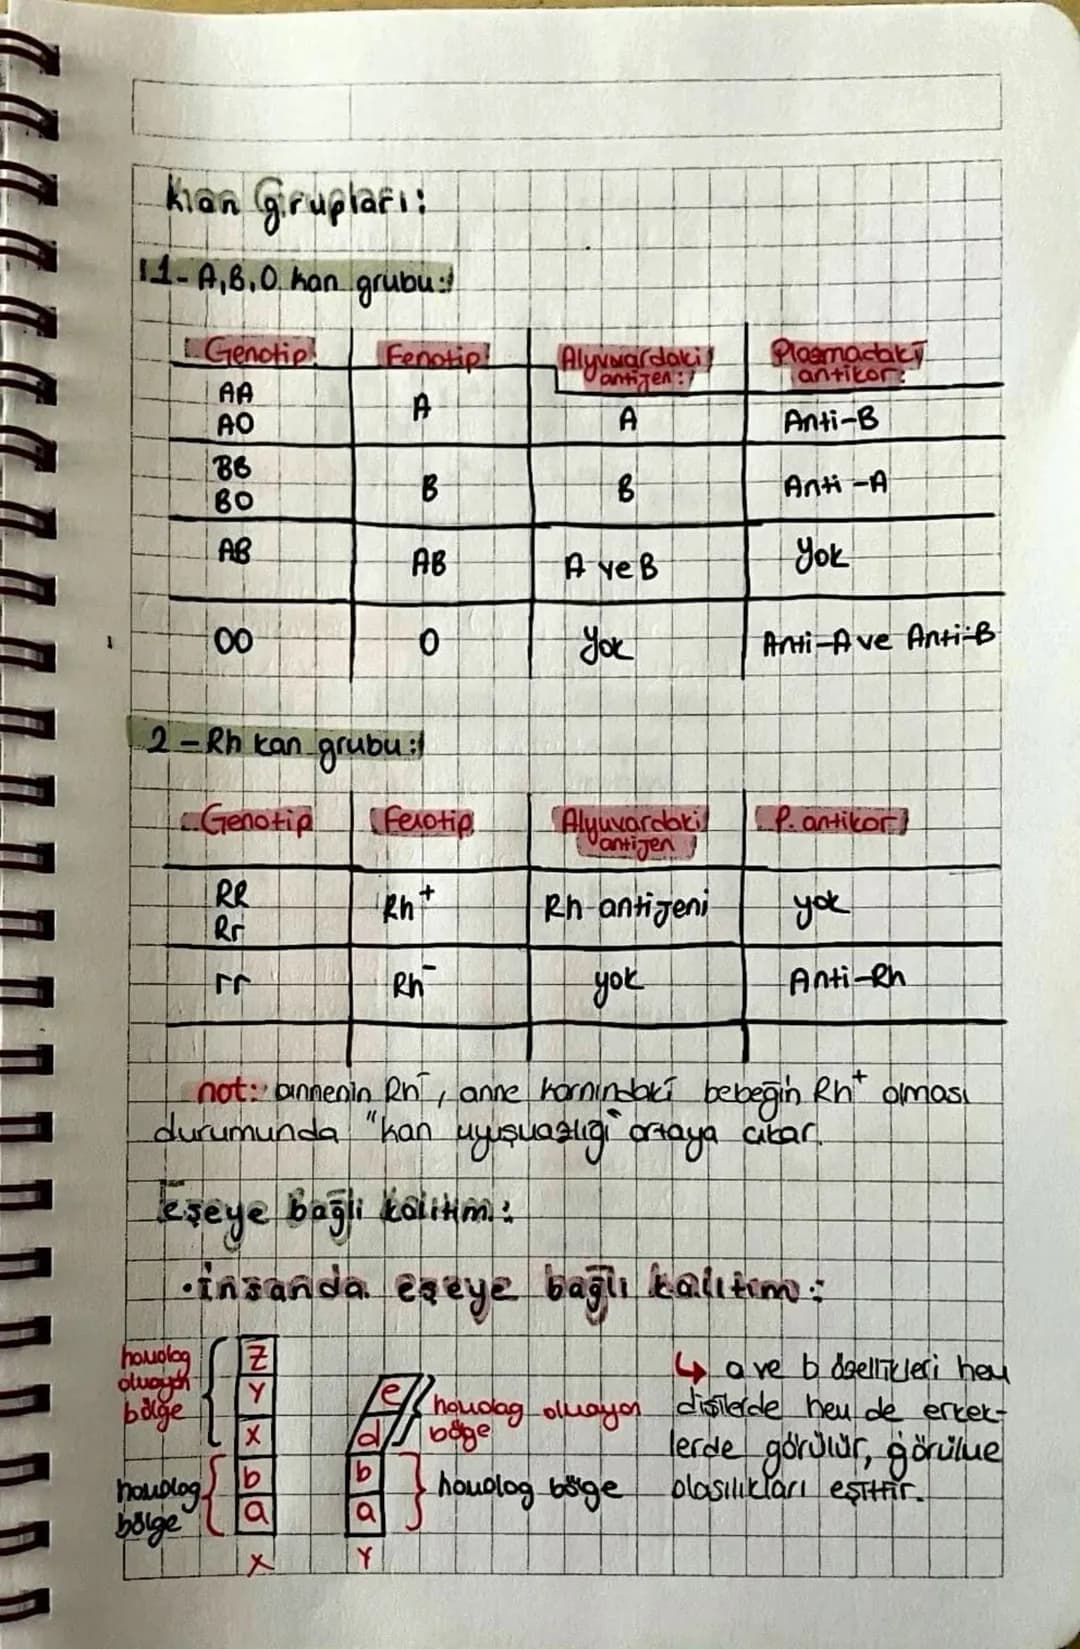 Kan Grupları:
1- A,B,O kan grubu:
Genotip Fenotip Alyuvardaki antijen: Plazmadaki antikor:
AA
AO
A A Anti-B
BB
BO
B B Anti-A
AB AB A ve B Yok
OO O Yok Anti-A ve Anti-B
2-Rh kan grubu:
Genotip Fenotip Alyuvardaki antijen P. antikor
RR
Rr
Rh⁺ Rh antijeni yok
rr Rh⁻ yok Anti-Rh
not: annenin Rh⁻, anne karnındaki bebeğin Rh⁺ olması
durumunda "kan uyuşmazlığı" ortaya çıkar.
Eşeye bağlı kalıtım:
•İnsanda eşeye bağlı kalıtım:
homolog
olmayan
bölge
z
y
x
homolog
bölge
b
a
X
e
d
homolog olmayan
bölge
b
a
homolog bölge
Y
↳ a ve b özellikleri hem
dişilerde hem de erkek-
lerde görülür, görülme
olasılıkları eşittir.